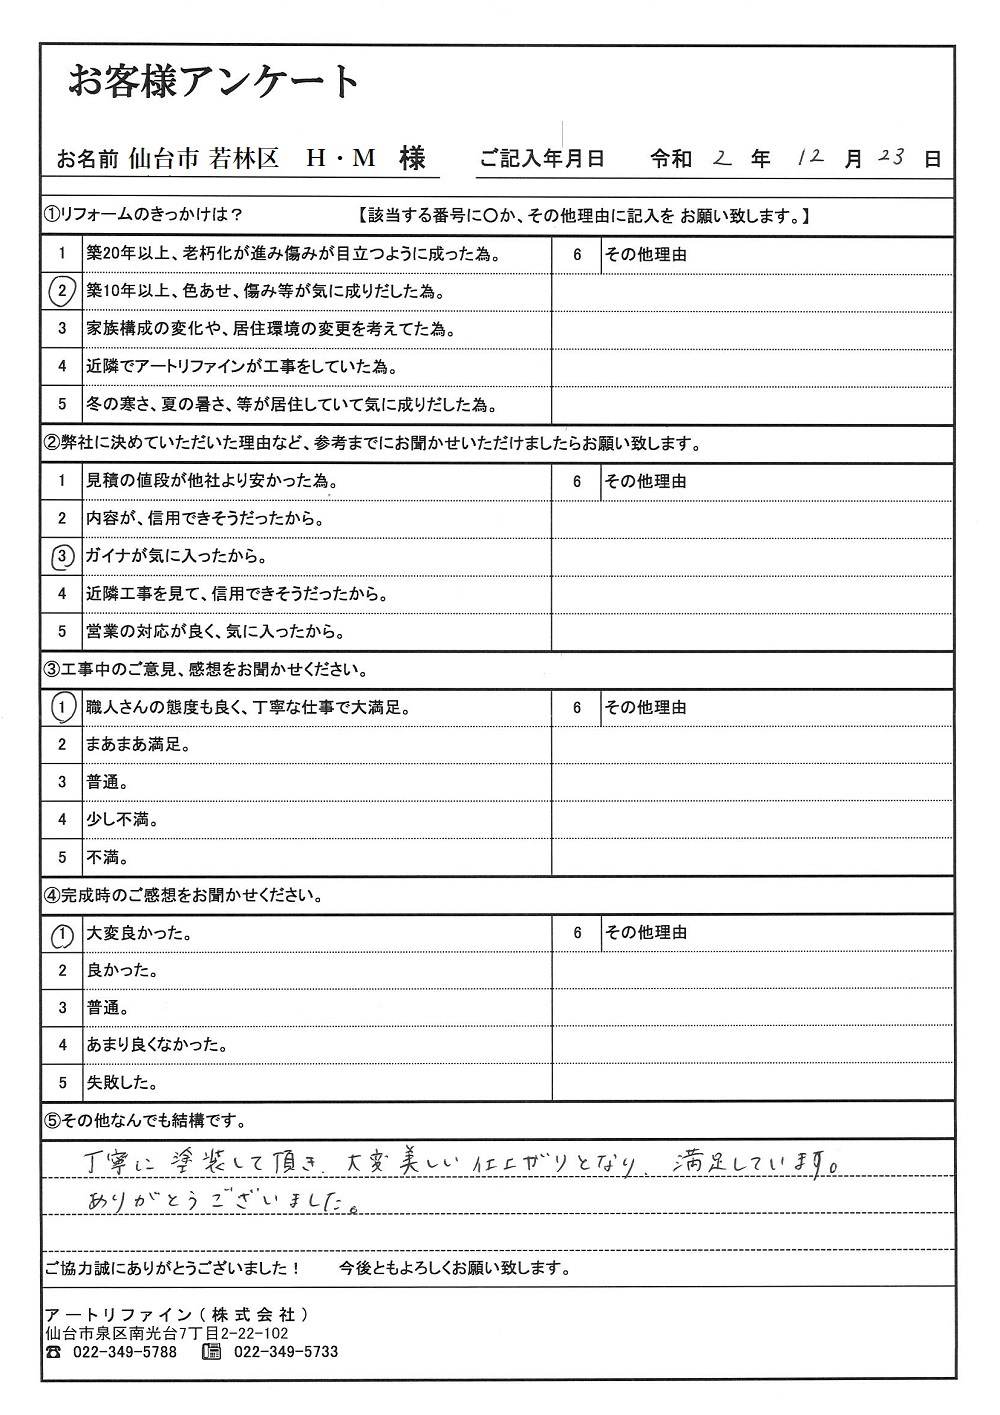 お客様アンケート
お名前 仙台市 若林区 H・M 様 ご記入年月日 令和 2 年 12 月 23 日
①リフォームのきっかけは？ 【該当する番号に〇か、その他理由に記入を お願い致します。】
1 築20年以上、老朽化が進み傷みが目立つように成った為。 6 その他理由
2 築10年以上、色あせ、傷み等が気に成りだした為。
3 家族構成の変化や、居住環境の変更を考えてた為。
4 近隣でアートリファインが工事をしていた為。
5 冬の寒さ、夏の暑さ、等が居住していて気に成りだした為。
②弊社に決めていただいた理由など、参考までにお聞かせいただけましたらお願い致します。
1 見積の値段が他社より安かった為。 6 その他理由
2 内容が、信用できそうだったから。
3 ガイナが気に入ったから。
4 近隣工事を見て、信用できそうだったから。
5 営業の対応が良く、気に入ったから。
③工事中のご意見、感想をお聞かせください。
1 職人さんの態度も良く、丁寧な仕事で大満足。 6 その他理由
2 まあまあ満足。
3 普通。
4 少し不満。
5 不満。
④完成時のご感想をお聞かせください。
1 大変良かった。 6 その他理由
2 良かった。
3 普通。
4 あまり良くなかった。
5 失敗した。
⑤その他なんでも結構です。
丁寧に塗装して頂き、大変美しい仕上がりとなり、満足しています。
ありがとうございました。
ご協力誠にありがとうございました！ 今後ともよろしくお願い致します。
アートリファイン(株式会社)
仙台市泉区南光台7丁目2-22-102
☎ 022-349-5788 📠 022-349-5733